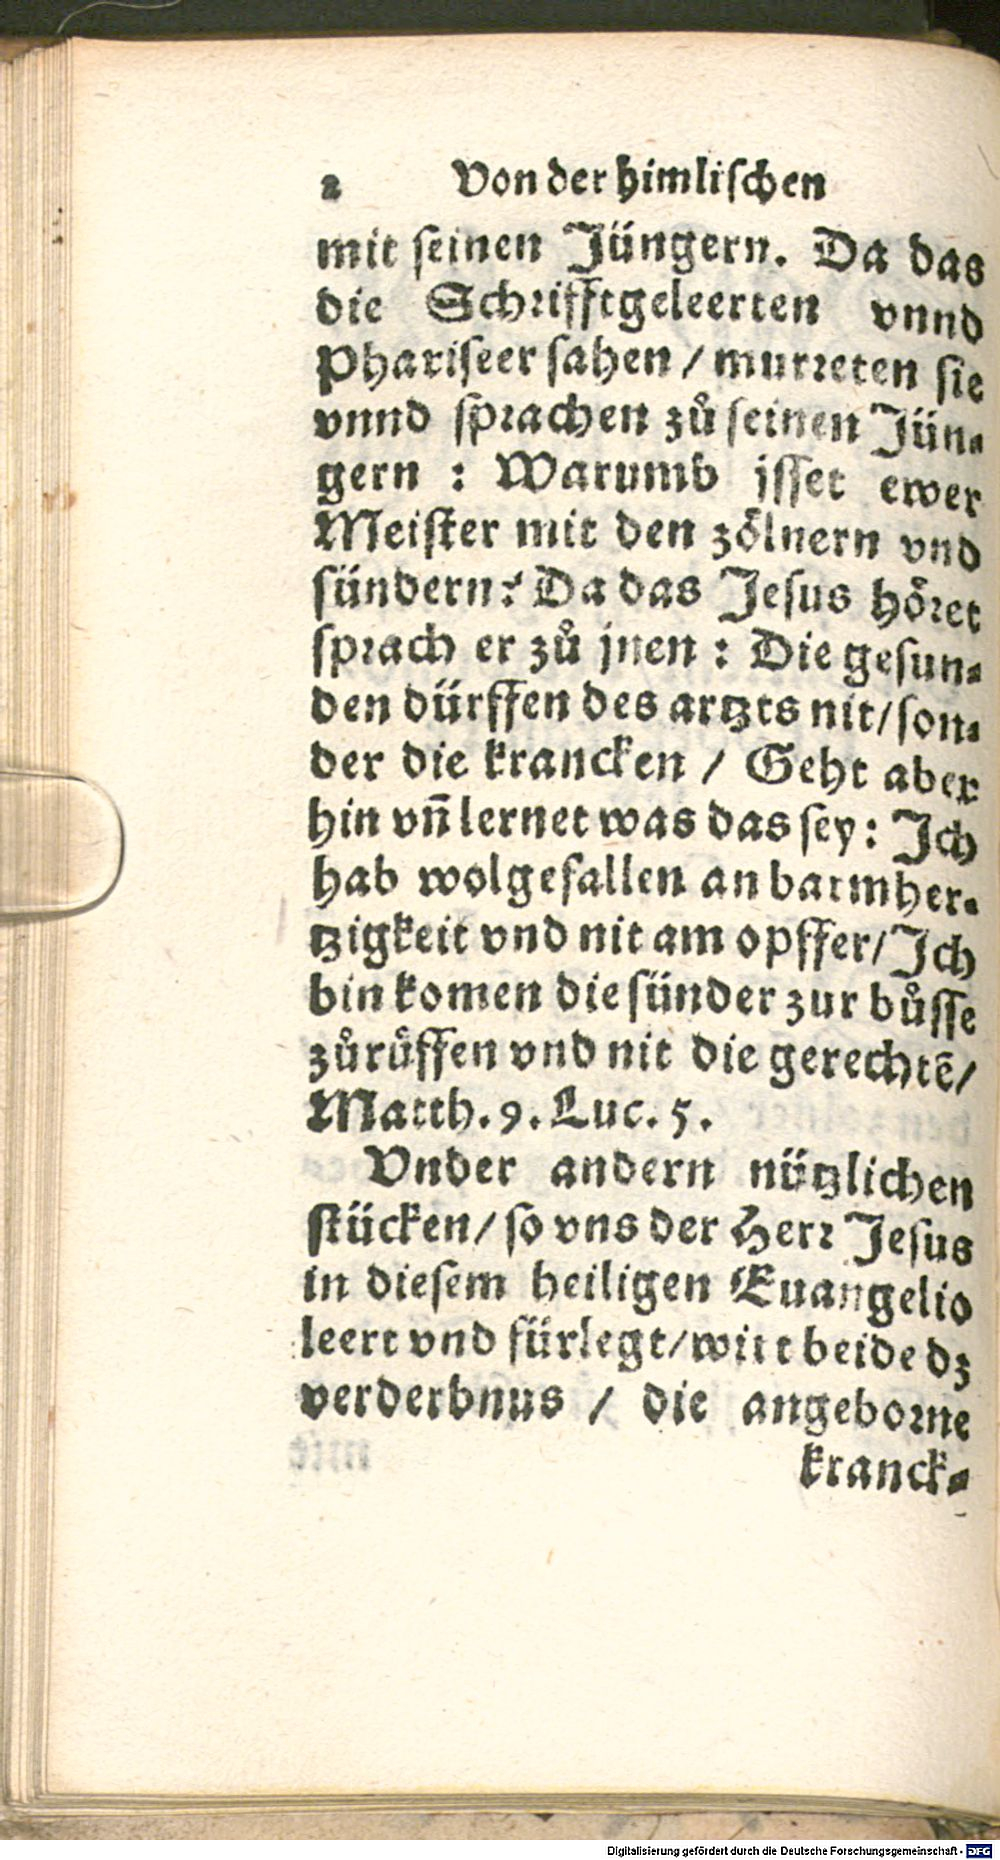 2 Von der himlischen
mit seinen Jüngern. Da das
die Schrifftgeleerten vnnd
Phariseer sahen / murreten sie
vnnd sprachen zů seinen Jün-
gern : Warumb jsset ewer
Meister mit den zölnern vnd
sündern? Da das Jesus höret
sprach er zů jnen : Die gesun-
den dürffen des artzts nit/ son-
der die krancken / Geht aber
hin vñ lernet was das sey: Ich
hab wolgefallen an barmher-
tzigkeit vnd nit am opffer/ Ich
bin komen die sünder zur bůsse
zůrůffen vnd nit die gerechtē/
Matth. 9. Luc. 5.
Vnder andern nützlichen
stücken/ so vns der Herr Jesus
in diesem heiligen Euangelio
leert vnd fürlegt/ wirt beide dz
verderbnus / die angeborne
kranck-
Digitalisierung gefördert durch die Deutsche Forschungsgemeinschaft - DFG